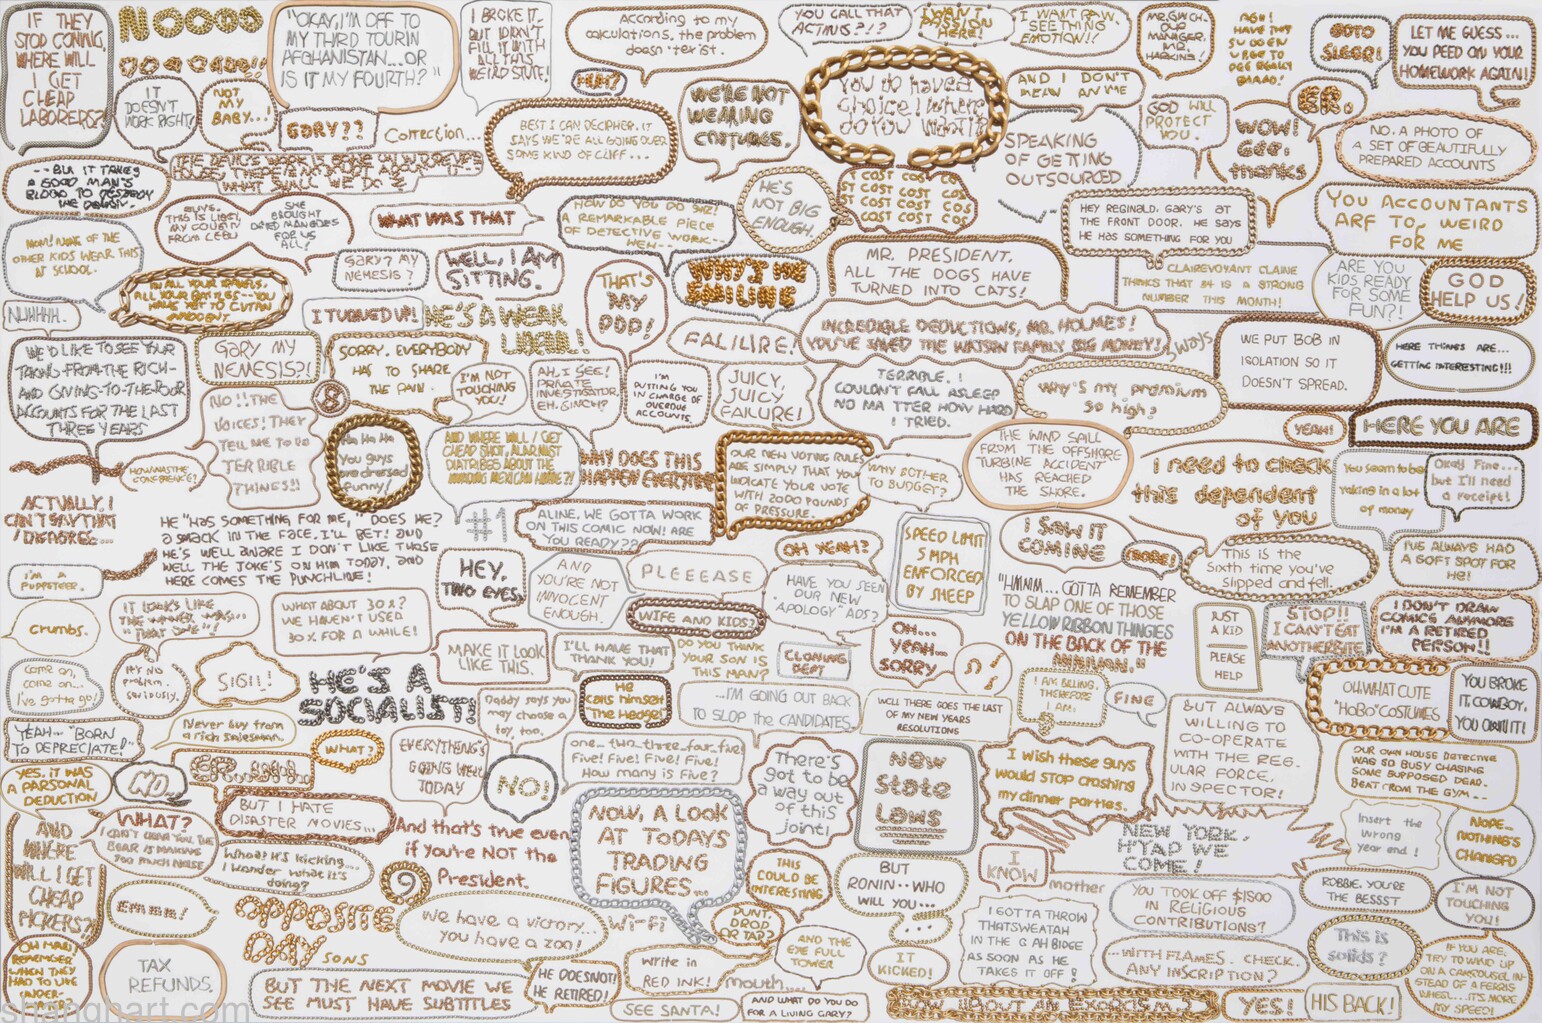 IF THEY
STOP COMING,
WHERE WILL
I GET
CHEAP
LABORERS?
NOOOO
"OKAY, I'M OFF TO
MY THIRD TOUR IN
AFGHANISTAN...OR
IS IT MY FOURTH?"
I BROKE IT,
BUT I DIDN'T
FILL IT WITH
ALL THIS
WEIRD STUFF!
According to my
calculations, the problem
doesn't exist.
YOU CALL THAT
ACTING?!?
I WANT
PASSION
HERE!
I WANT RAW,
SEETHING
EMOTION!!
GOTO
SLEEP!
LET ME GUESS...
YOU PEED ON YOUR
HOMEWORK AGAIN!
IT
DOESN'T
WORK RIGHT!
NOT
MY
BABY...
GARY??
Correction...
HUH?
BEST I CAN DECIPHER, IT
SAYS WE'RE ALL GOING OVER
SOME KIND OF CLIFF...
WE'RE NOT
WEARING
COSTUMES.
You do have a
choice! Where
do you want it?
AND I DON'T
MEAN ANIME
SPEAKING
OF GETTING
OUTSOURCED
GOD WILL
PROTECT
YOU.
ER.
WOW!
Gee.
thanks
NO. A PHOTO OF
A SET OF BEAUTIFULLY
PREPARED ACCOUNTS
--BUT IT TAKES
A GOOD MAN'S
BLOOD TO DESTROY
THE DEMON.
GUYS,
THIS IS LIBBY,
MY COUSIN
FROM CEBU
SHE
BROUGHT
DRIED MANGOES
FOR US
ALL!
WHAT WAS THAT
HOW DO YOU DO SIR!
A REMARKABLE PIECE
OF DETECTIVE WORK--
HEH--
HE'S
NOT BIG
ENOUGH.
COST COST CO
ST COST COST
COST COST CO
ST COST COST
HEY REGINALD, GARY'S AT
THE FRONT DOOR. HE SAYS
HE HAS SOMETHING FOR YOU
YOU ACCOUNTANTS
ARE TO WEIRD
FOR ME
MOM! NONE OF THE
OTHER KIDS WEAR THIS
AT SCHOOL.
GARY? MY
NEMESIS?
WELL, I AM
SITTING.
THAT'S
MY
POP!
WHY'S HE
SMILING
MR. PRESIDENT,
ALL THE DOGS HAVE
TURNED INTO CATS!
CLAIREVOYANT CLAINE
THINKS THAT 34 IS A STRONG
NUMBER THIS MONTH!
ARE YOU
KIDS READY
FOR SOME
FUN?!
GOD
HELP US!
NUHHH.
I TURNED UP!
HE'S A WEAK
LIBERAL!
FAILURE!
INCREDIBLE DEDUCTIONS, MR. HOLMES!
YOU'VE SAVED THE WATSON FAMILY BIG MONEY!
3 WAYS
WE PUT BOB IN
ISOLATION SO IT
DOESN'T SPREAD.
HERE THINGS ARE...
GETTING INTERESTING!!!
WE'D LIKE TO SEE YOUR
TAKING-FROM-THE-RICH-
AND-GIVING-TO-THE-POOR
ACCOUNTS FOR THE LAST
THREE YEARS
GARY MY
NEMESIS?!
SORRY, EVERYBODY
HAS TO SHARE
THE PAIN.
I'M NOT
TOUCHING
YOU!
AH, I SEE!
PRIVATE
INVESTIGATOR,
EH, GINCH?
I'M
PUTTING YOU
IN CHARGE OF
OVERDUE
ACCOUNTS.
JUICY,
JUICY
FAILURE!
TERRIBLE. I
COULDN'T FALL ASLEEP
NO MATTER HOW HARD
I TRIED.
Why's my premium
so high?
YEAH!
HERE YOU ARE
NO!! THE
VOICES! THEY
TELL ME TO DO
TERRIBLE
THINGS!!
Ha Ha Ha
You guys
are dressed
funny!
HOW WAS THE
CONFERENCE?
WHY DOES THIS
HAPPEN EVERYTIME
OUR NEW VOTING RULES
ARE SIMPLY THAT YOU
INDICATE YOUR VOTE
WITH 2000 POUNDS
OF PRESSURE.
WHY BOTHER
TO BUDGET?
THE WIND SAIL
FROM THE OFFSHORE
TURBINE ACCIDENT
HAS REACHED
THE SHORE.
I need to check
this dependent
of you
You seem to be
raking in a lot
of money
Okay! Fine...
but I'll need
a receipt!
ACTUALLY, I
CAN'T SAY THAT
I DISAGREE...
HE "HAS SOMETHING FOR ME," DOES HE?
A SMACK IN THE FACE, I'LL BET! AND
HE'S WELL AWARE I DON'T LIKE THOSE
WELL THE JOKE'S ON HIM TODAY, AND
HERE COMES THE PUNCHLINE!
#1
ALINE, WE GOTTA WORK
ON THIS COMIC NOW! ARE
YOU READY??
OH YEAH?
SPEED LIMIT
5 MPH
ENFORCED
BY SHEEP
I SAW IT
COMING
This is the
sixth time you've
slipped and fell.
I'VE ALWAYS HAD
A SOFT SPOT FOR
HB!
I'M A
PUPPETEER.
HEY,
TWO EYES
AND
YOU'RE NOT
INNOCENT
ENOUGH.
PLEEEASE
HAVE YOU SEEN
OUR NEW
"APOLOGY" ADS?
"HMMM... GOTTA REMEMBER
TO SLAP ONE OF THOSE
YELLOW RIBBON THINGIES
ON THE BACK OF THE
MINIVAN."
crumbs.
WHAT ABOUT 30%?
WE HAVEN'T USED
30% FOR A WHILE!
WIFE AND KIDS?
CLONING
DEPT
OH...
YEAH...
SORRY
JUST
A KID
PLEASE
HELP
STOP!!
I CAN'T EAT
ANOTHER BITE
I DON'T DRAW
COMICS ANYMORE
I'M A RETIRED
PERSON!!
MAKE IT LOOK
LIKE THIS.
I'LL HAVE THAT
THANK YOU!
DO YOU THINK
YOUR SON IS
THIS MAN?
come on,
come on...
I've gotta go!
it's no
problem.
seriously.
SIGH!
HE'S A
SOCIALIST!
Daddy says you
may choose a
toy, too.
He
calls himself
The Hedge!
...I'M GOING OUT BACK
TO SLOP THE CANDIDATES.
WELL THERE GOES THE LAST
OF MY NEW YEARS
RESOLUTIONS
I AM BILLING,
THEREFORE
I AM.
FINE
BUT ALWAYS
WILLING TO
CO-OPERATE
WITH THE REG-
ULAR FORCE,
INSPECTOR!
OH, WHAT CUTE
"HOBO" COSTUMES
YOU BROKE
IT, COWBOY,
YOU OWN IT!
YEAH... "BORN
TO DEPRECIATE!"
Never buy from
a rich salesman.
WHAT?
EVERYTHING'S
GOING WELL
TODAY
NO!
one...two...three...four...five!
Five! Five! Five! Five!
How many is five?
There's
got to be
a way out
of this
joint!
New
State
Laws
I wish these guys
would stop crashing
my dinner parties.
OUR OWN HOUSE DETECTIVE
WAS SO BUSY CHASING
SOME SUPPOSED DEAD-
BEAT FROM THE GYM--
YES, IT WAS
A PARSONAL
DEDUCTION
NO...
BUT I HATE
DISASTER MOVIES...
And that's true even
if you're NOT the
President.
NOW, A LOOK
AT TODAYS
TRADING
FIGURES...
NEW YORK,
H'YAD WE
COME!
Insert the
wrong
year end!
NOPE...
NOTHING'S
CHANGED
AND
WHERE
WILL I GET
CHEAP
PICKERS?
WHAT?
I CAN'T HEAR YOU, THE
BEAR IS MAKING
TOO MUCH NOISE
Whoa! It's kicking...
I wonder what it's
doing?
THIS
COULD BE
INTERESTING
BUT
RONIN--WHO
WILL YOU...
I
KNOW
mother
YOU TOOK OFF $1500
IN RELIGIOUS
CONTRIBUTIONS?
ROBBIE, YOU'RE
THE BESSST
I'M NOT
TOUCHING
YOU!
OPPOSITE
DAY
SONS
We have a victory...
you have a zoo!
Wi-Fi
PUNT,
DROP
OR TAP?
...
I GOTTA THROW
THATSWEATAH
IN THE GAHBIDGE
AS SOON AS HE
TAKES IT OFF!
This is
solids?
OH MAN!
REMEMBER
WHEN THEY
HAD TO USE
TAX
REFUNDS.
BUT THE NEXT MOVIE WE
SEE MUST HAVE SUBTITLES
HE DOESNOT!
HE RETIRED!
Write in
RED INK!
mouth...
AND THE
EYE FULL
TOWER
IT
KICKED!
...WITH FLAMES. CHECK.
ANY INSCRIPTION?
IF YOU ARE,
TRY TO WIND UP
ON A CAROUSEL IN-
STEAD OF A FERRIS
WHEEL...IT'S MORE
MY SPEED!
SEE SANTA!
AND WHAT DO YOU DO
FOR A LIVING GARY?
HOW ABOUT AN EXORCISM..?
YES!
HIS BACK!
shanghart.com